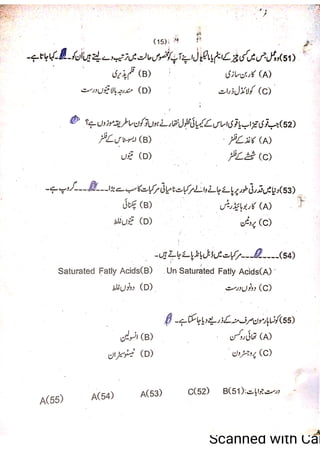 (15)
(51) وہ عمل جس میں کسی چیز کے ایٹم یا مالیکیول اپنے آپ کو مخصوص حالت میں ترتیب دے لیتے ہیں اُن کو ------ کہا جاتا ہے۔
(A) کاربن سازی (B) قلم پذیری
(C) کولائیڈل ذرات (D) مندرجہ بالا تینوں درست
(52) جب قوی تیزاب یا قوی اساس کے کیمیائی محلول نتھارنے ہوں تو کون سا طریقہ موزوں ہے؟
(A) کاغذ کے فلٹر (B) ایسبسٹاس کے فلٹر
(C) شیشے کے فلٹر (D) تینوں
(53) دنیا میں قدرتی طور پر پائے جانے والے مرکبات نامیاتی مرکبات کا سب سے بڑا ------ گروپ ہے۔
(A) کاربوہائیڈریٹس (B) چکنائی
(C) پروٹین (D) تینوں غلط
(54) ------ مرکبات میں ڈبل بانڈ پائے جاتے ہیں۔
Un Saturated Fatly Acids(A) Saturated Fatly Acids(B)
(C) دونوں درست (D) دونوں غلط
(55) کونسا ہارمون صرف منہ کے ذریعے دیا جا سکتا ہے۔
(A) تھائی روکسن (B) انسولین
(C) پروجسٹرون (D) ٹیسٹوسٹیران
درست جوابات: B(51) C(52) A(53) A(54) A(55)
Scanned with Ca